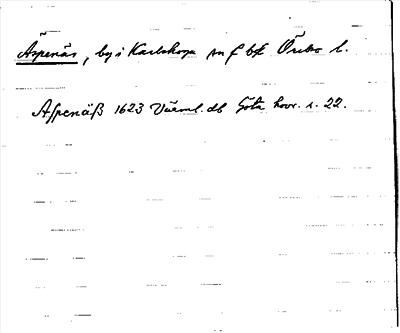 Aspenäs, by i Karlskoga sn f bsk Örebro l.
Aspenäß 1623 Värml. db Göta hovr. s. 22.